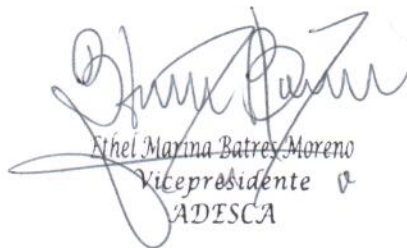 Ethel Marina Batres Moreno
Vicepresidente
ADESCA